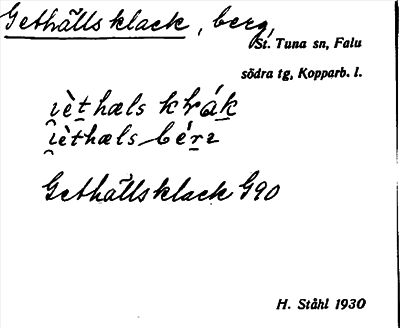 Gethålls klack, berg,
St. Tuna sn, Falu
södra tg, Kopparb. l.
ịèt hæls krák
ịèthæls bérɪ
Gethålls klack G90
H. Ståhl 1930